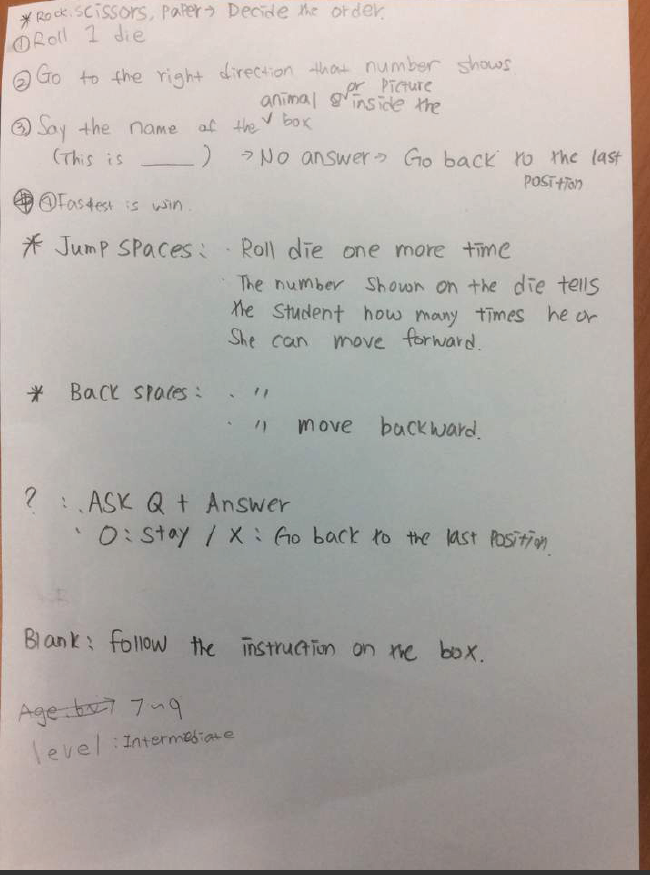 * Rock. scissors, paper → Decide the order.
① Roll 1 die
② Go to the right direction that number shows
③ Say the name of the animal or picture inside the box
(This is ____ ) → No answer → Go back to the last position
④ Fastest is win.
* Jump spaces: · Roll die one more time
· The number shown on the die tells
the student how many times he or
she can move forward.
* Back spaces: · "
· " move backward.
? : · ASK Q + Answer
· O: stay / X: Go back to the last position
Blank: follow the instruction on the box.
7~9
level: Intermediate